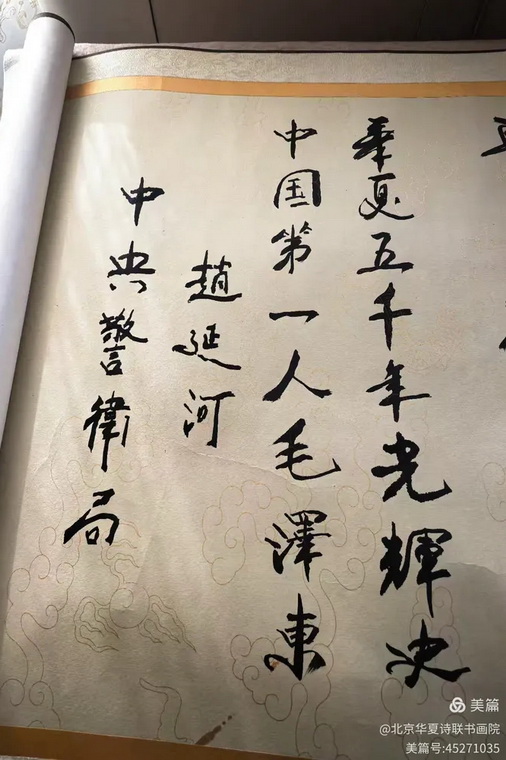 华夏五千年光輝史
中国第一人毛澤東
趙延河
中央警衛局
美篇
@北京华夏诗联书画院
美篇号:45271035